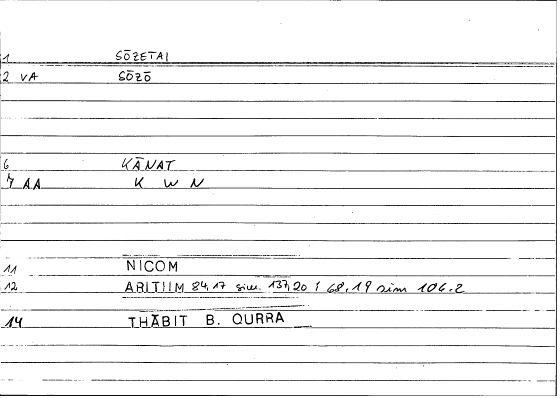 1 SŌZETAI
2 VA SŌZŌ
6 KĀNAT
7 AA K W N
11 NICOM
12 ARITIIM 84,17 sim. 137,20 / 68,19 sim 106.2
14 THĀBIT B. QURRA